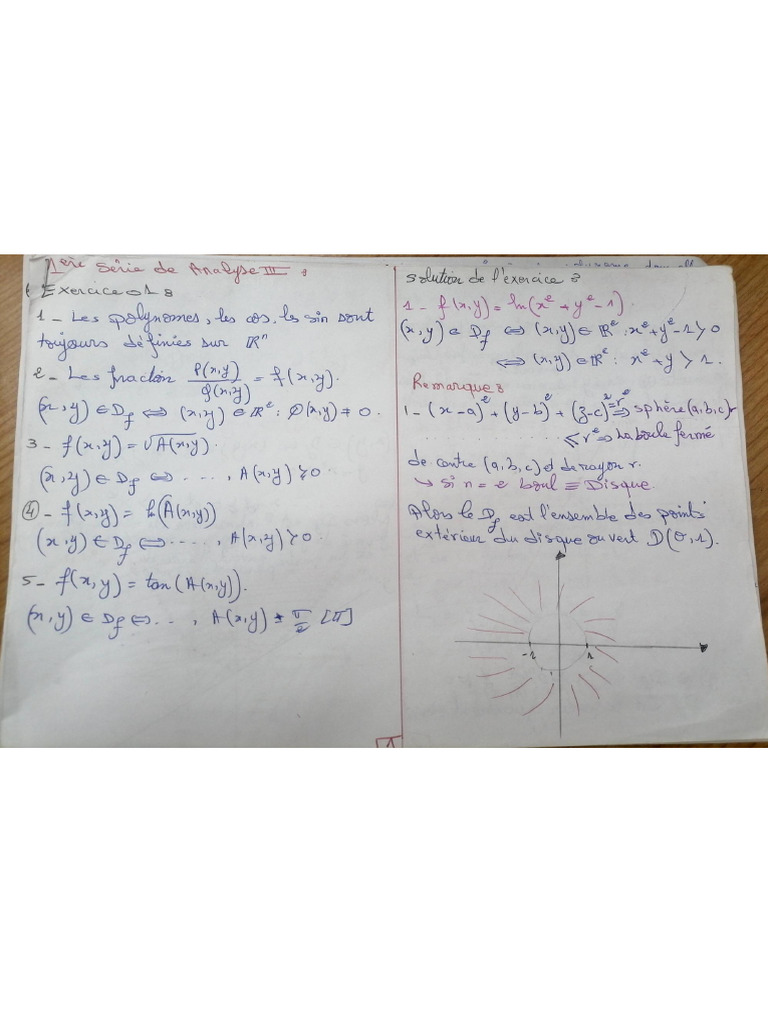 1ere Série de Analyse III :
Exercice 01 :
1 - Les polynomes, les cos, les sin sont
toujours définies sur ℝⁿ
2 - Les fraction P(x,y)/Q(x,y) = f(x,y).
(x,y) ∈ Df ⟺ (x,y) ∈ ℝ² : Q(x,y) ≠ 0.
3 - f(x,y) = √A(x,y).
(x,y) ∈ Df ⟺ ...., A(x,y) ≥ 0.
④ - f(x,y) = ln(A(x,y))
(x,y) ∈ Df ⟺ ....., A(x,y) > 0.
5 - f(x,y) = tan(A(x,y)).
(x,y) ∈ Df ⟺ ..., A(x,y) ≠ π/2 [π]
1
Solution de l'exercice :
1 - f(x,y) = ln(x² + y² - 1).
(x,y) ∈ Df ⟺ (x,y) ∈ ℝ² : x² + y² - 1 > 0
⟺ (x,y) ∈ ℝ² : x² + y > 1.
Remarque :
1 - (x-a)² + (y-b)² + (z-c)² = r² ⟹ sphère (a,b,c) r
.............. ≤ r² ⟹ La boule fermé
de centre (a,b,c) et de rayon r.
↪ si n = 2 boul ≡ Disque.
Alors le Df est l'ensemble des points
extérieur du disque ouvert D(0,1).
-1 1